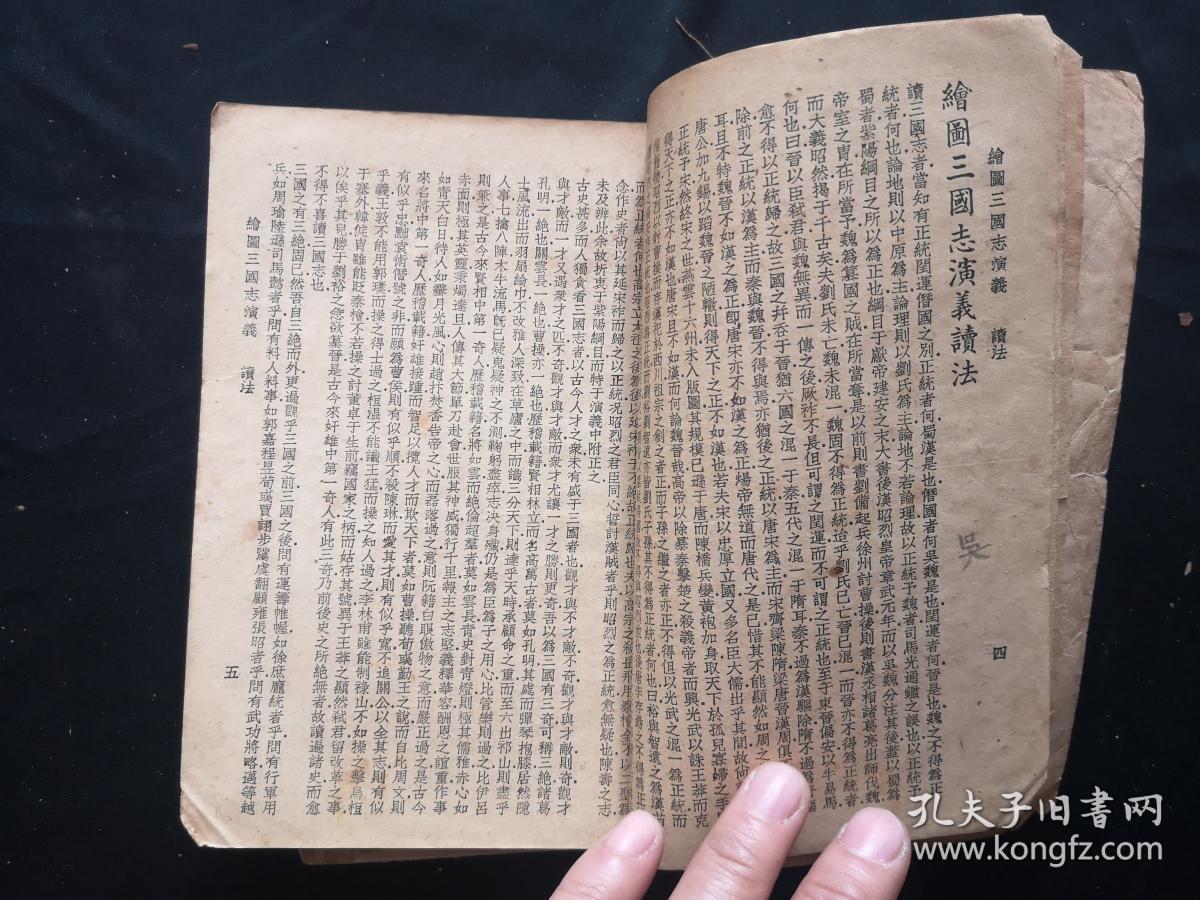 繪圖三國志演義　讀法　四
繪圖三國志演義讀法
讀三國志者當知有正統閏運僭國之別正統者何蜀漢是也僭國者何吳魏是也閏運者何晉是也魏之不得爲正
統者何也論地則以中原爲主論理則以劉氏爲主論地不若論理故以正統予魏者司馬光通鑑之誤也以正統予
蜀者紫陽綱目之所以爲正也綱目于獻帝建安之末大書後漢昭烈皇帝章武元年而以吳魏分注其後蓋以蜀爲
帝室之胄在所當予魏爲篡國之賊在所當奪是以前則書劉備起兵徐州討曹操後則書漢丞相諸葛亮出師伐魏
而大義昭然揭于千古矣夫劉氏未亡魏未混一魏固不得爲正統迨乎劉氏已亡晉已混一而晉亦不得爲正統者
何也曰晉以臣弒君與魏無異而一傳之後厥祚不長但可謂之閏運而不可謂之正統也至于東晉偏安以牛易馬
愈不得以正統歸之故三國之幷呑于晉猶六國之混一于秦五代之混一于隋耳秦不過爲漢驅除隋不過爲
除前之正統以漢爲主而秦與魏晉不得與焉亦猶後之正統以唐宋爲主而宋齊梁陳隋梁唐晉漢周俱
耳且不特魏晉不如漢之爲正卽唐宋亦不如漢之爲正煬帝無道而唐代之是已惜其不能顯然如周之
唐公加九錫以蹈魏晉之陋轍則得天下之正不如漢也若夫宋以忠厚立國又多名臣大儒出乎其間故尙
正統予宋然終宋之世燕雲十六州未入版圖其規模已遜于唐而陳橋兵變黃袍加身取天下於孤兒寡婦之手
得天下之正亦不如漢也唐宋且不如漢而何論魏晉哉高帝以除暴秦擊楚之殺義帝者而興光武以誅王莽而克
念作史者尙以其延宋祚而歸之以正統况昭烈之君臣同心誓討漢賊者乎則昭烈之爲正統愈無疑也陳壽之志
未及辨此余故折衷于紫陽綱目而特于演義中附正之
古史甚多而人獨貪看三國志者以古今人才之衆未有盛于三國者也觀才與不才敵不奇觀才與才敵則奇觀才
與才敵而一才又遇衆才之匹不奇觀才與才敵而衆才尤讓一才之勝則更奇吾以爲三國有三奇可稱三絕諸葛
孔明一絕也關雲長一絕也曹操亦一絕也歷稽載籍賢相林立而名高萬古者莫如孔明其處而彈琴抱膝居然隱
士風流出而羽扇綸巾不改雅人深致在草廬之中而識三分天下則達乎天時承顧命之重而至六出祁山則盡乎
人事七擒八陣木牛流馬旣已疑鬼疑神之不測鞠躬盡瘁志決身殲仍是爲臣爲子之用心比管樂則過之比伊呂
則兼之是古今來賢相中第一奇人歷稽載籍名將如雲而絕倫超羣者莫如雲長青史對青燈則極其儒雅赤心如
赤面則極其英靈秉燭達旦人傳其大節單刀赴會世服其神威獨行千里報主之志堅義釋華容酬恩之誼重作事
如青天白日待人如霽月光風心則趙抃焚香告帝之心而磊落過之意則阮籍白眼傲物之意而嚴正過之是古今
來名將中第一奇人歷稽載籍奸雄接踵而智足以攬人才而欺天下者莫如曹操聽荀彧勤王之說而自比周文則
有似乎忠黜袁術僭號之非而願爲曹侯則有似乎順不殺陳琳而愛其才則有似乎寬不追關公以全其志則有似
乎義王敦不能用郭璞而操之得士過之桓温不能識王猛而操之知人過之李林甫雖能制祿山不如操之擊烏桓
于塞外韓侂胄雖能貶秦檜不若操之討董卓于生前竊國家之柄而姑存其號異于王莽之顯然弒君留改革之事
以俟乎其兒勝于劉裕之急欲篡晉是古今來奸雄中第一奇人有此三奇乃前後史之所絕無者故讀遍諸史而愈
不得不喜讀三國志也
三國之有三絕固已然吾自三絕而外更遍觀乎三國之前三國之後問有運籌帷幄如徐庶龐統者乎問有行軍用
兵如周瑜陸遜司馬懿者乎問有料人料事如郭嘉程昱荀彧賈詡步騭虞翻顧雍張昭者乎問有武功將略邁等越
繪圖三國志演義　讀法　五
吳
孔夫子旧書网
www.kongfz.com